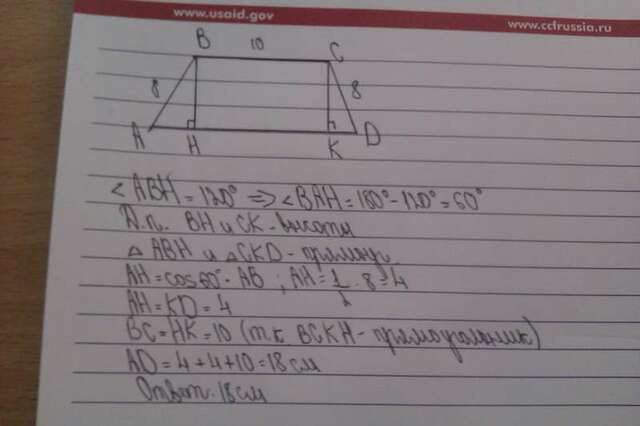 www.usaid.gov
www.ccfrussia.ru
B 10 C
8 8
A H K D
∠ABH = 120° ⇒ ∠BAH = 180° - 120° = 60°
Д.п. BH и CK - высоты
△ABH и △CKD - прямоуг.
AH = cos60° · AB ; AH = 1/2 · 8 = 4
AH = KD = 4
BC = HK = 10 (т.к BCKH - прямоугольник)
AD = 4 + 4 + 10 = 18 см
Ответ. 18 см